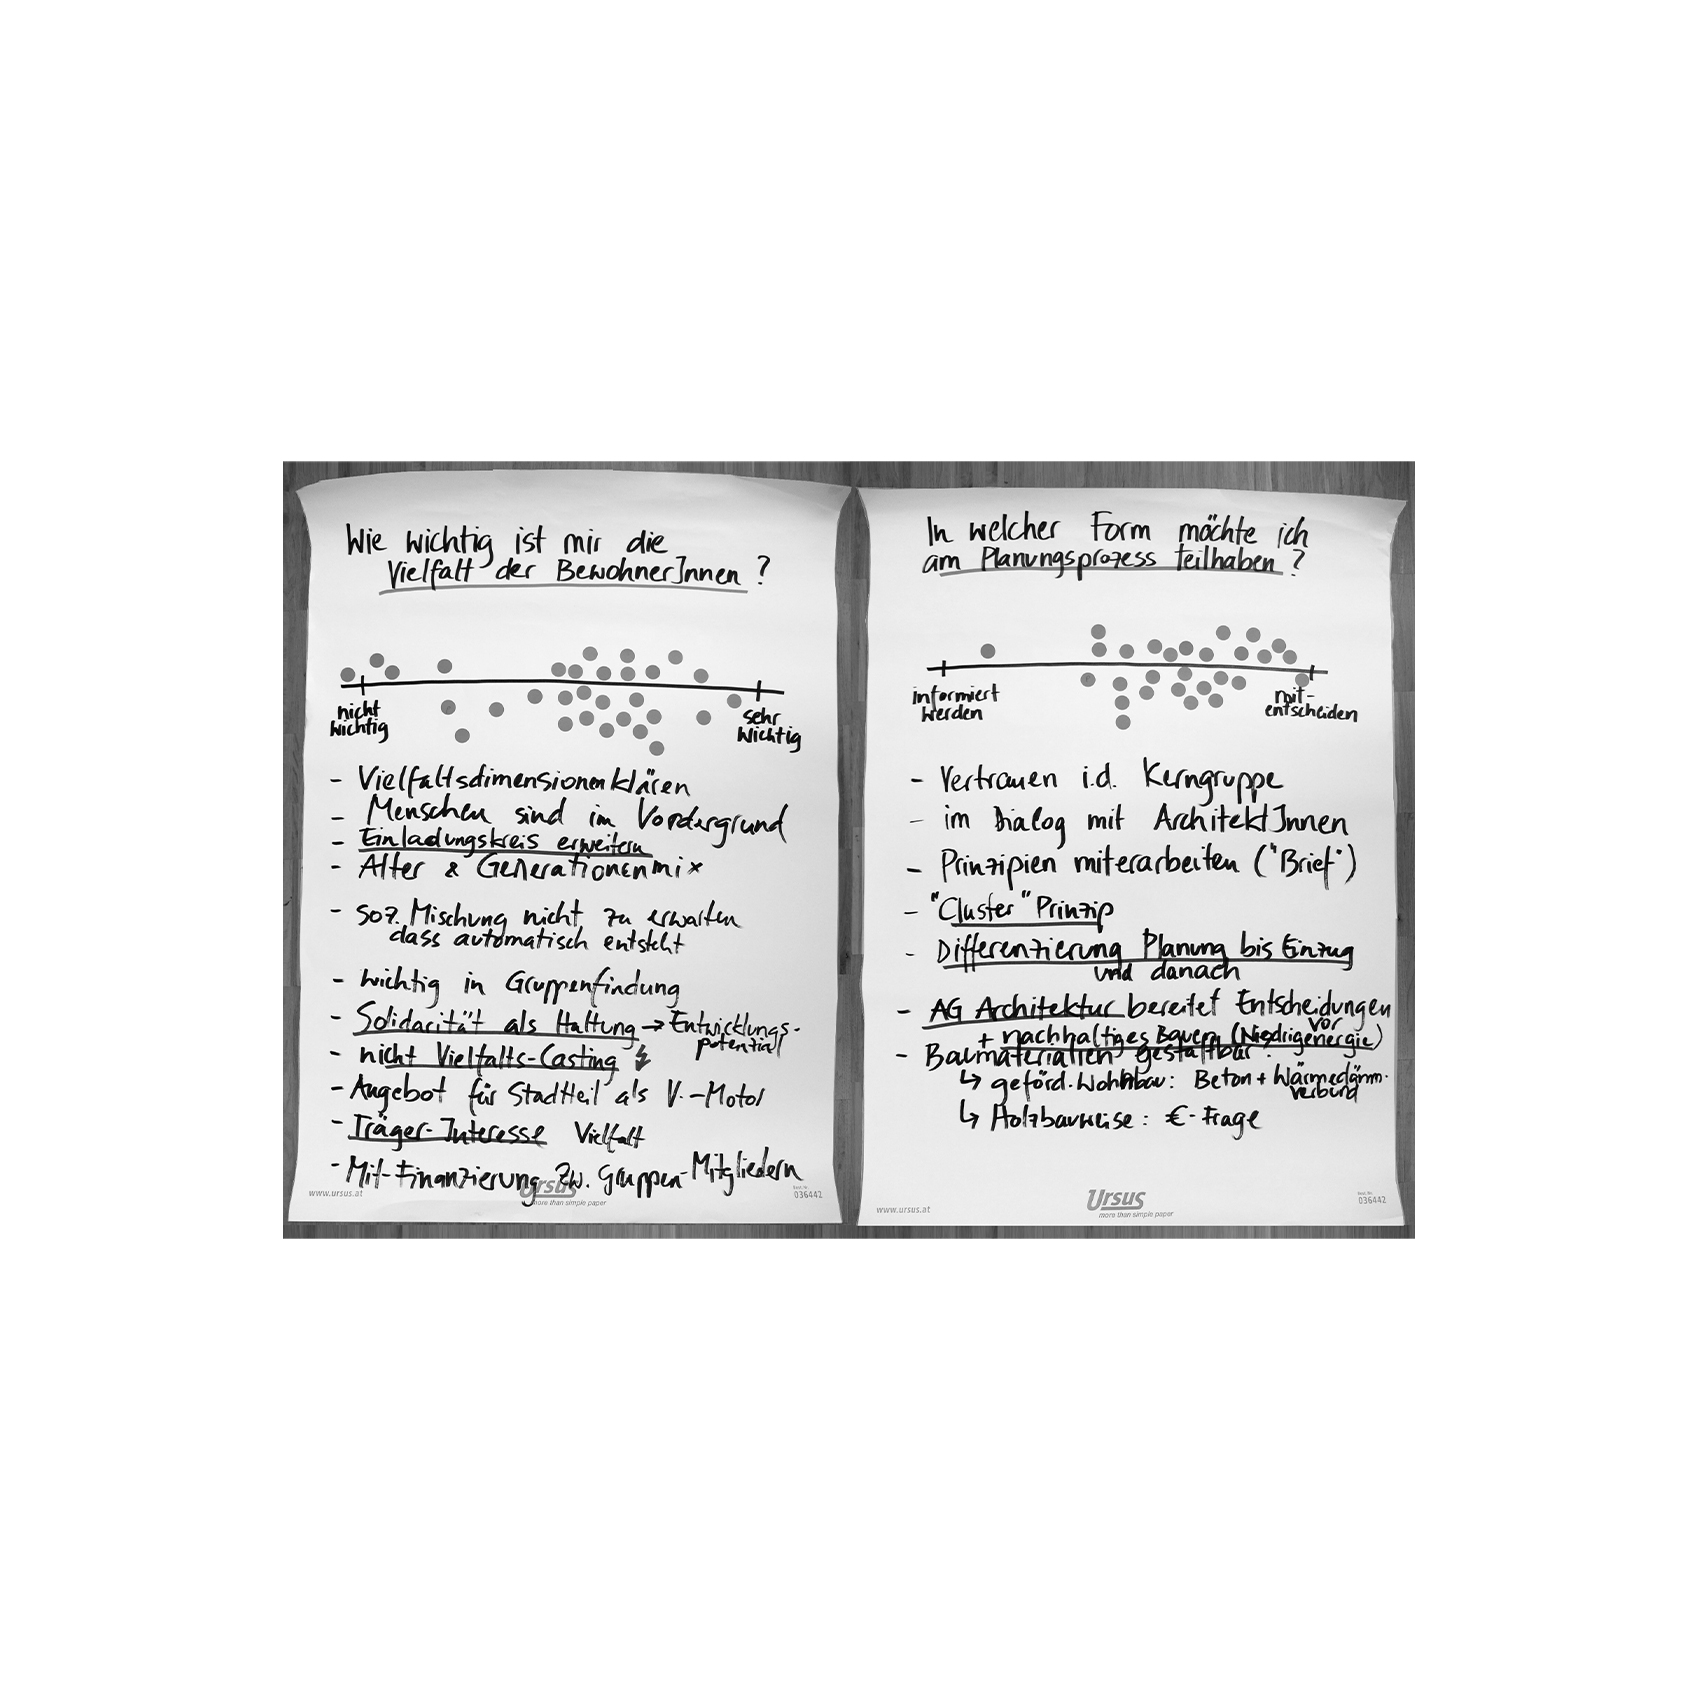 Wie wichtig ist mir die
Vielfalt der BewohnerInnen ?
nicht
wichtig
sehr
wichtig
- Vielfaltsdimensionen klären
- Menschen sind im Vordergrund
- Einladungskreis erweitern
- Alter & Generationenmix
- soz. Mischung nicht zu erwarten
dass automatisch entsteht
- wichtig in Gruppenfindung
- Solidarität als Haltung → Entwicklungs-
potenzial
- nicht Vielfalts-Casting
- Angebot für Stadtteil als V.-Motor
- Träger-Interesse Vielfalt
- Mit-Finanzierung zw. Gruppen-Mitgliedern
www.ursus.at
Ursus
more than simple paper
036442
In welcher Form möchte ich
am Planungsprozess teilhaben ?
informiert
werden
mit-
entscheiden
- Vertrauen i.d. Kerngruppe
- im Dialog mit ArchitektInnen
- Prinzipien miterarbeiten ("Brief")
- "Cluster" Prinzip
- Differenzierung Planung bis Einzug
und danach
- AG Architektur bereitet Entscheidungen
vor
+ nachhaltiges Bauen (Niedrigenergie)
- Baumaterialien gestaltbar ?
↳ geförd. Wohnbau: Beton + Wärmedämm-
verbund
↳ Holzbauweise: €-Frage
www.ursus.at
Ursus
more than simple paper
036442